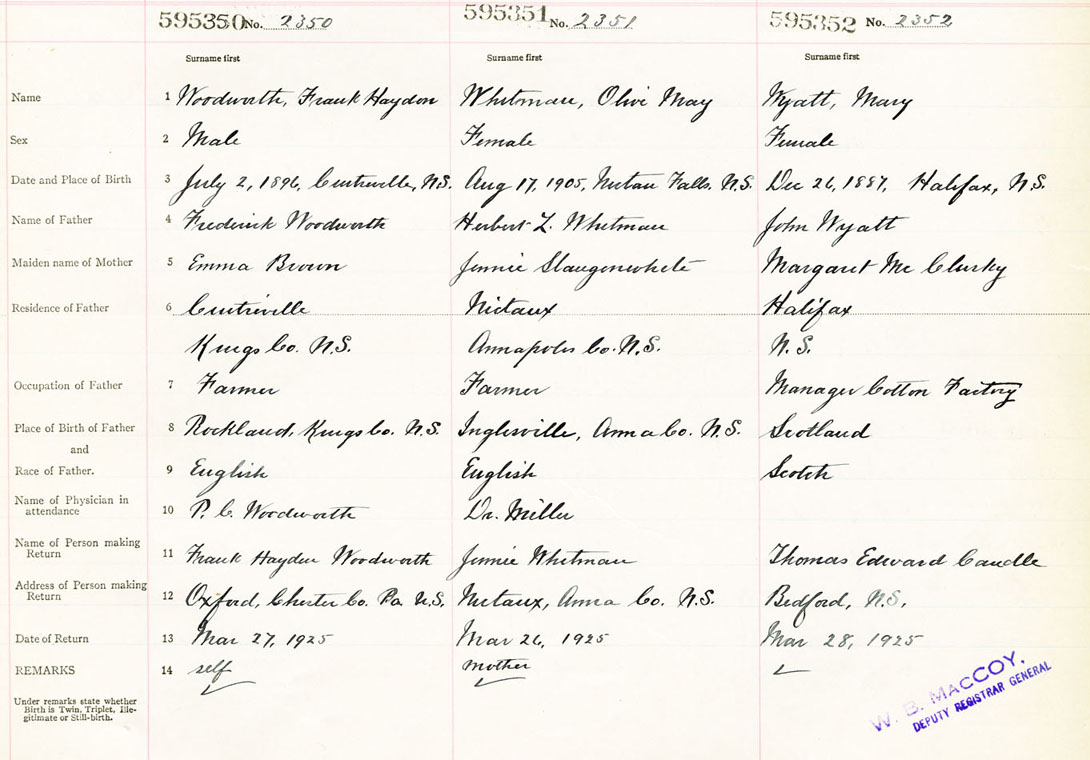 595350 No. 2350 595351 No. 2351 595352 No. 2352
Surname first Surname first Surname first
Name 1 Woodworth, Frank Haydon Whitman, Olive May Wyatt, Mary
Sex 2 Male Female Female
Date and Place of Birth 3 July 2, 1896, Centreville, N.S. Aug 17, 1905, Nictau Falls. N.S. Dec 26, 1887, Halifax, N.S.
Name of Father 4 Frederick Woodworth Herbert L. Whitman John Wyatt
Maiden name of Mother 5 Emma Brown Jennie Slaugenwhite Margaret Mc Clusky
Residence of Father 6 Centreville Nictaux Halifax
Kings Co. N.S. Annapolis Co. N.S. N.S.
Occupation of Father 7 Farmer Farmer Manager Cotton Factory
Place of Birth of Father 8 Rockland, Kings Co. N.S. Inglisville, Anna Co. N.S. Scotland
and
Race of Father. 9 English English Scotch
Name of Physician in
attendance 10 P. C. Woodworth Dr. Miller
Name of Person making
Return 11 Frank Hayden Woodworth Jennie Whitman Thomas Edward Caudle
Address of Person making
Return 12 Oxford, Chester Co. Pa. U.S. Nictaux, Anna Co. N.S. Bedford, N.S.
Date of Return 13 Mar 27, 1925 Mar 26, 1925 Mar 28, 1925
REMARKS 14 self mother
Under remarks state whether
Birth is Twin, Triplet, Ille-
gitimate or Still-birth.
W. B. MacCOY,
DEPUTY REGISTRAR GENERAL